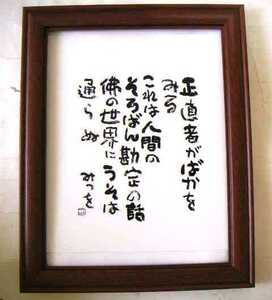 正直者がばかを
みる
これは人間の
そろばん勘定の話
佛の世界にうそは
通らぬ
みつを